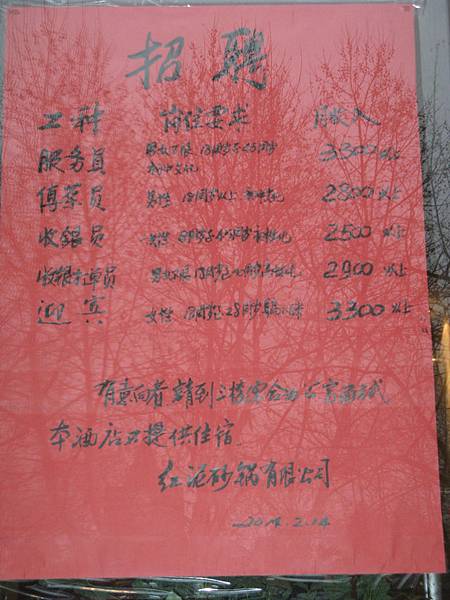 招聘
工种 岗位要求 月收入
服务员 男女不限 18周岁至25周岁 3300以上
初中文化
传菜员 男性 18周岁以上 初中文化 2800以上
收银员 女性 2500以上
收银 单员 男女不限 18周岁 2900以上
迎宾 女性 18周岁 28周岁 3300以上
有意向者 请到三楼综合办公室面试
本酒店 提供住宿
红泥砂锅有限公司
2.14